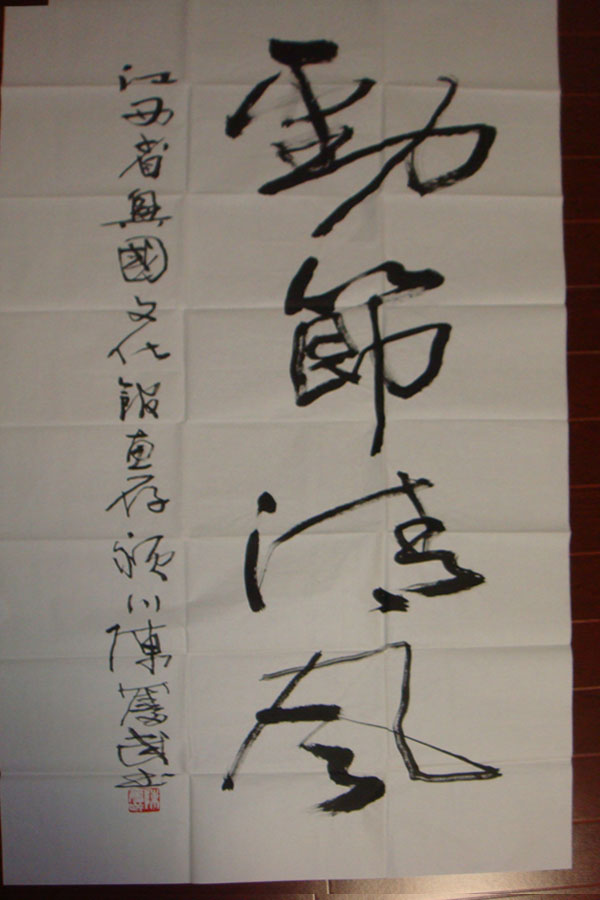 勁節清風
江西省興國文化館惠存 潁川陳